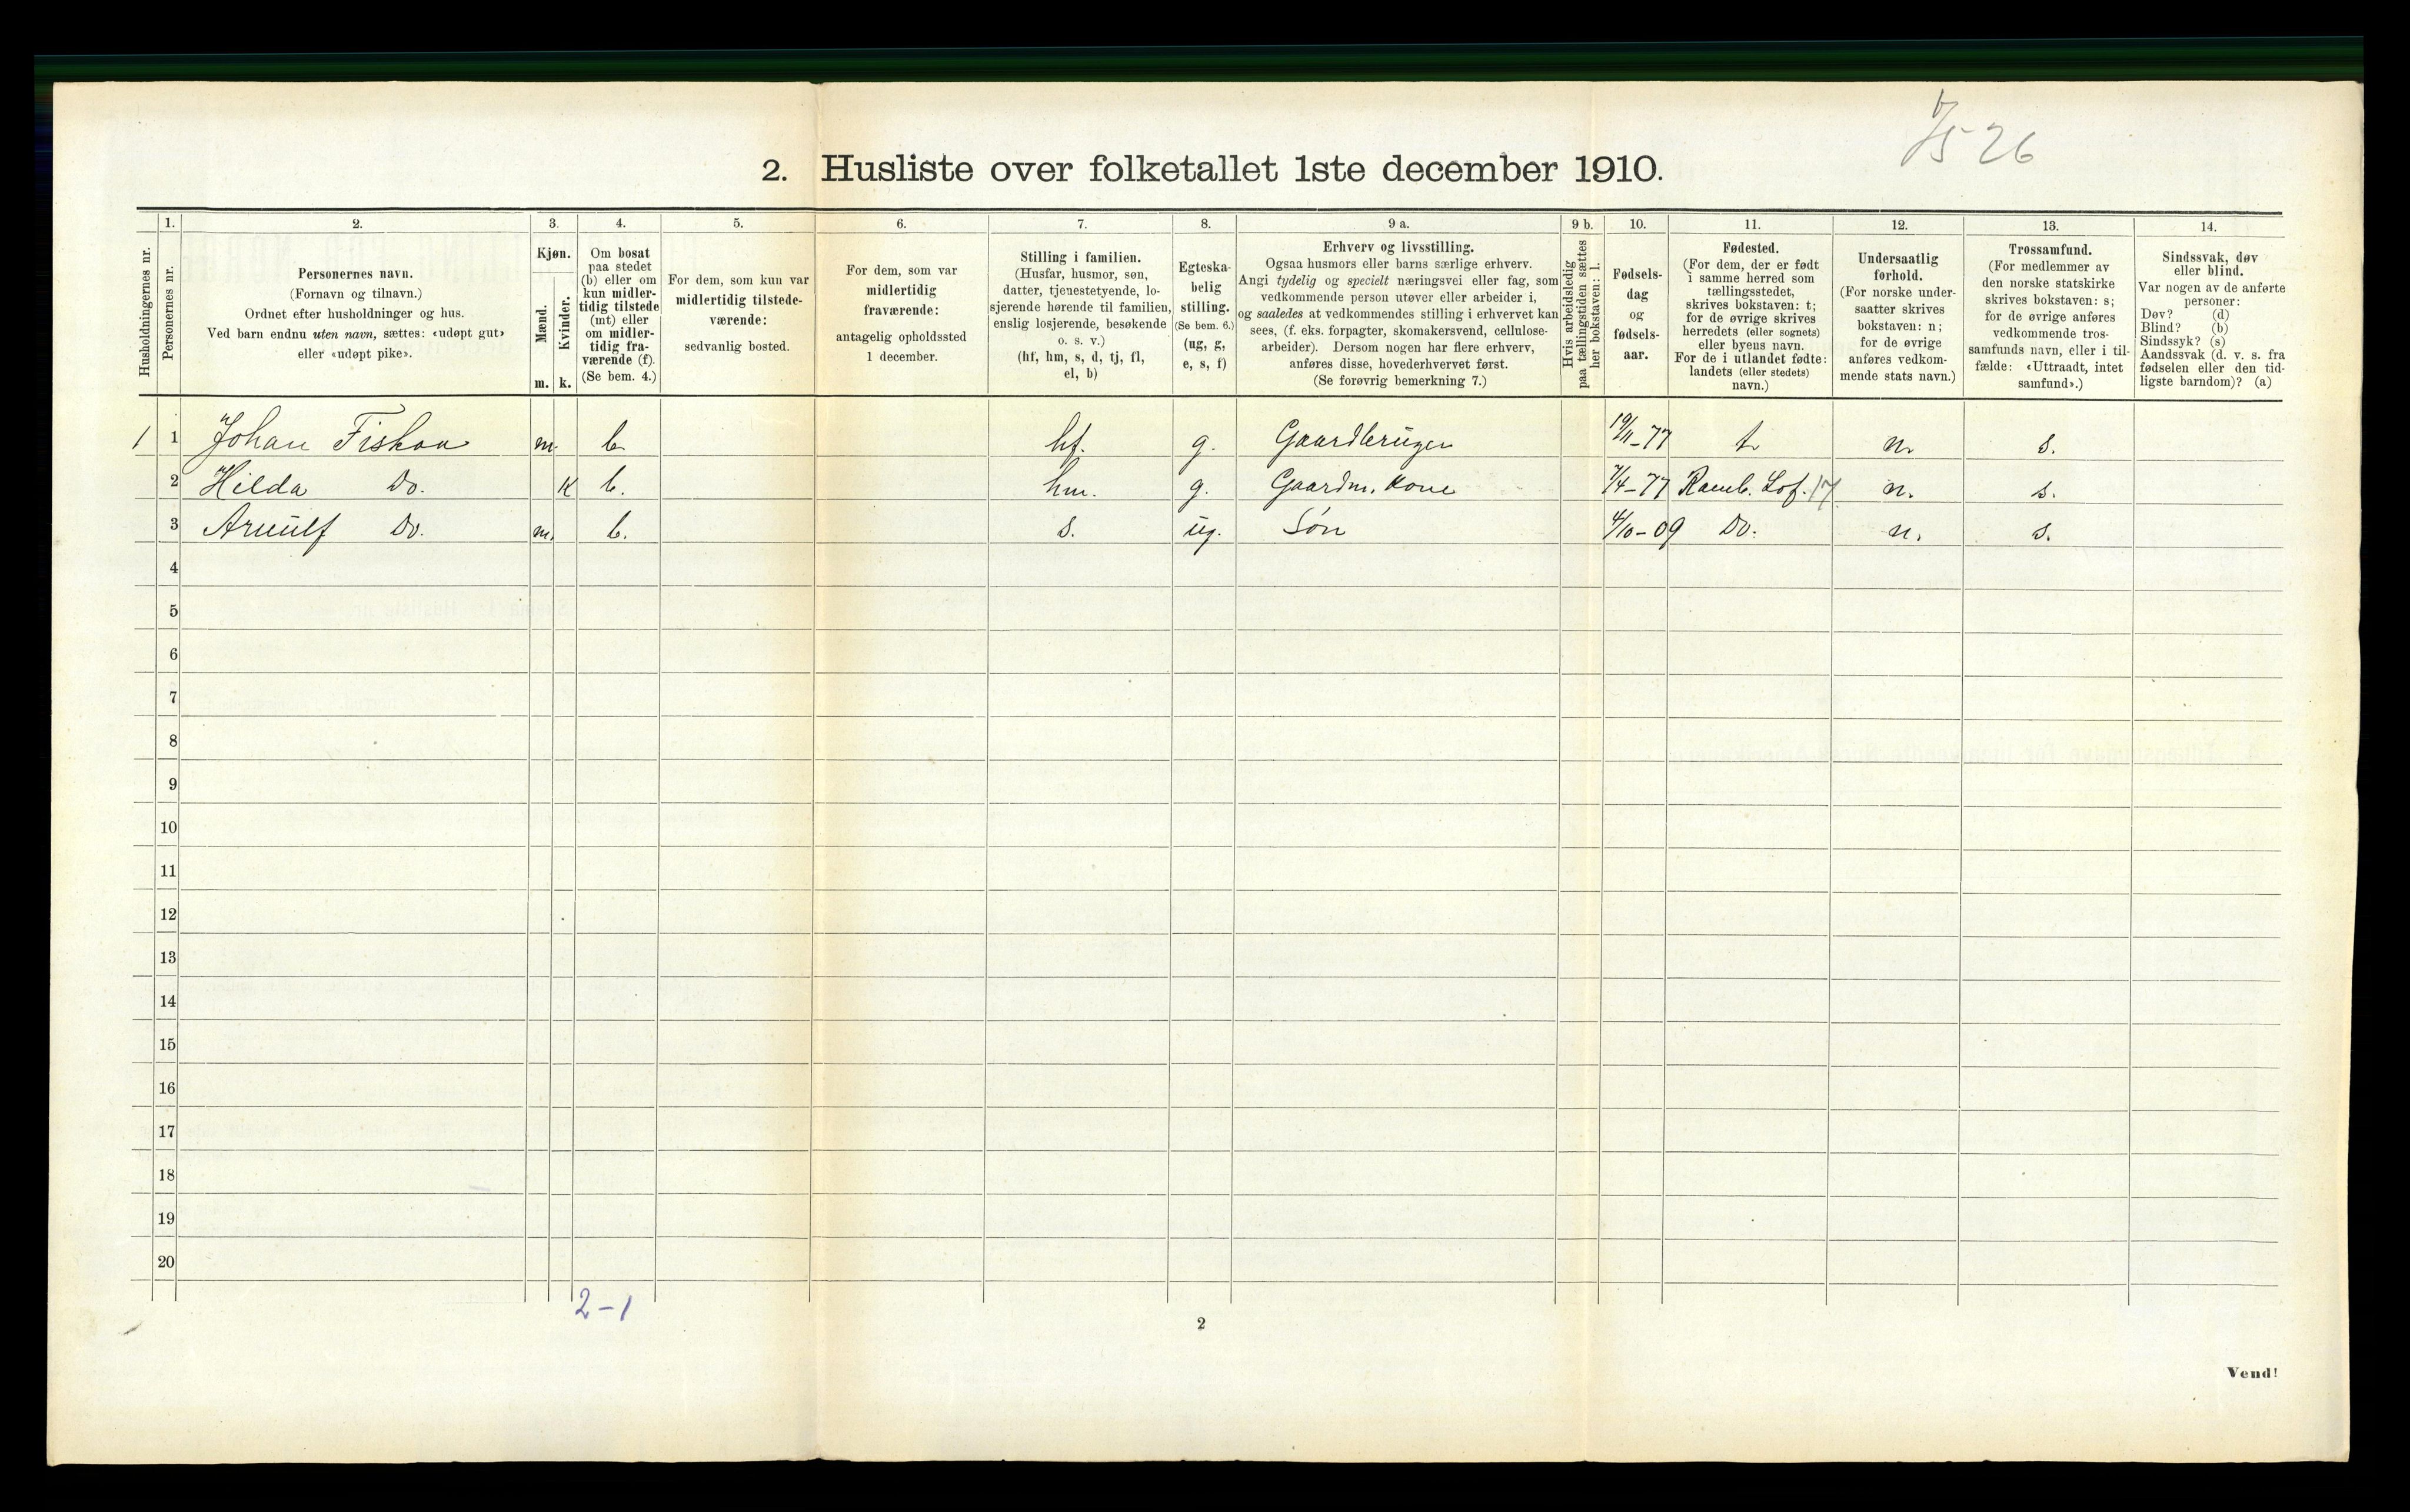 7/5 26
2. Husliste over folketallet 1ste december 1910.
Husholdningernes nr.
1.
Personernes nr.
2.
Personernes navn.
(Fornavn og tilnavn.)
Ordnet efter husholdninger og hus.
Ved barn endnu uten navn, sættes: «udøpt gut»
eller «udøpt pike».
3.
Kjøn.
Mænd.
Kvinder.
m. k.
4.
Om bosat
paa stedet
(b) eller om
kun midler-
tidig tilstede
(mt) eller
om midler-
tidig fra-
værende (f).
(Se bem. 4.)
5.
For dem, som kun var
midlertidig tilstede-
værende:
sedvanlig bosted.
6.
For dem, som var
midlertidig
fraværende:
antagelig opholdssted
1 december.
7.
Stilling i familien.
(Husfar, husmor, søn,
datter, tjenestetyende, lo-
sjerende hørende til familien,
enslig losjerende, besøkende
o. s. v.)
(hf, hm, s, d, tj, fl,
el, b)
8.
Egteska-
belig
stilling.
(Se bem. 6.)
(ug, g,
e, s, f)
9 a.
Erhverv og livsstilling.
Ogsaa husmors eller barns særlige erhverv.
Angi tydelig og specielt næringsvei eller fag, som
vedkommende person utøver eller arbeider i,
og saaledes at vedkommendes stilling i erhvervet kan
sees, (f. eks. forpagter, skomakersvend, cellulose-
arbeider). Dersom nogen har flere erhverv,
anføres disse, hovederhvervet først.
(Se forøvrig bemerkning 7.)
9 b.
Hvis arbeidsledig
paa tællingstiden sættes
her bokstaven: l.
10.
Fødsels-
dag
og
fødsels-
aar.
11.
Fødested.
(For dem, der er født
i samme herred som
tællingsstedet,
skrives bokstaven: t;
for de øvrige skrives
herredets (eller sognets)
eller byens navn.
For de i utlandet fødte:
landets (eller stedets)
navn.)
12.
Undersaatlig
forhold.
(For norske under-
saatter skrives
bokstaven: n;
for de øvrige
anføres vedkom-
mende stats navn.)
13.
Trossamfund.
(For medlemmer av
den norske statskirke
skrives bokstaven: s;
for de øvrige anføres
vedkommende tros-
samfunds navn, eller i til-
fælde: «Uttraadt, intet
samfund».)
14.
Sindssvak, døv
eller blind.
Var nogen av de anførte
personer:
Døv? (d)
Blind? (b)
Sindssyk? (s)
Aandssvak (d. v. s. fra
fødselen eller den tid-
ligste barndom)? (a)
1 1 Johan Fiskaa m. b. hf. g. Gaardbruger 19/11-77 t. n. s.
2 Hilda Do. K b. hm. g. Gaardm. Kone 7/4-77 Ramb. Lof. 17 n. s.
3 Arnulf Do. m. b. s. ug. Søn 4/10-09 Do. n. s.
4
5
6
7
8
9
10
11
12
13
14
15
16
17
18
19
20
2-1
2
Vend!